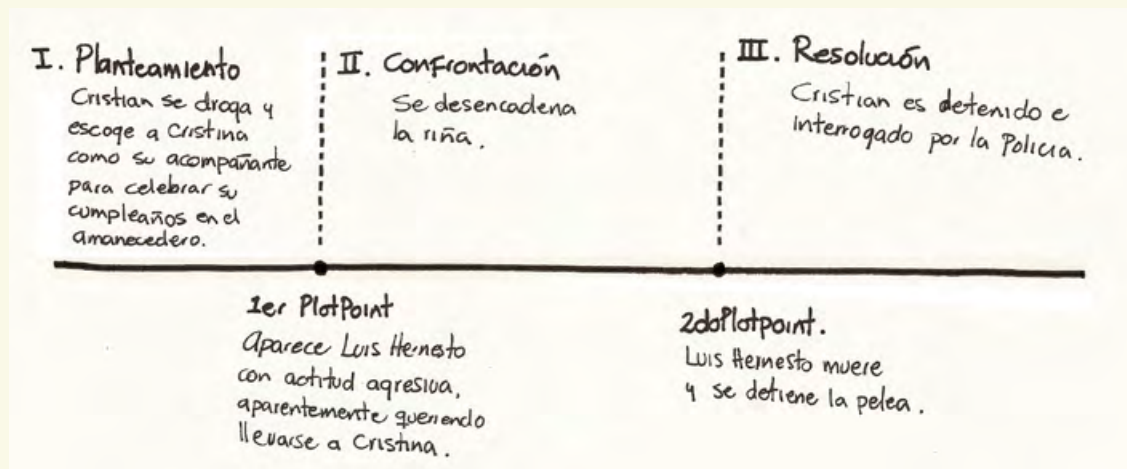 I. Planteamiento
Cristian se droga y
escoge a Cristina
como su acompañante
para celebrar su
cumpleaños en el
amanecedero.
II. Confrontación
Se desencadena
la riña.
III. Resolución
Cristian es detenido e
interrogado por la Policia.
1er PlotPoint
Aparece Luis Hernesto
con actitud agresiva,
aparentemente queriendo
llevarse a Cristina.
2doPlotpoint.
Luis Hernesto muere
y se detiene la pelea.